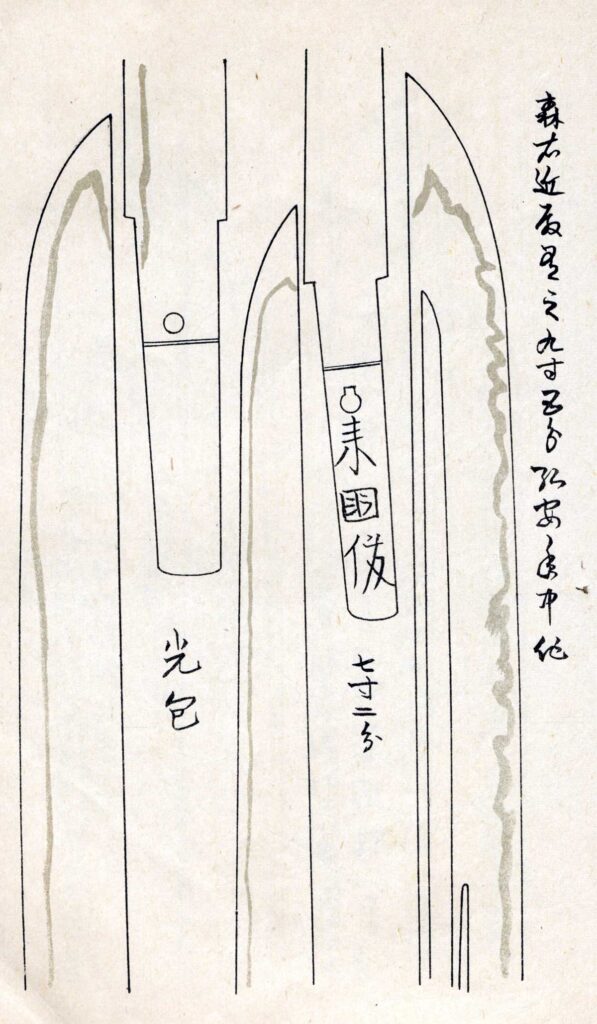 森右近殿有之九寸五分弘安年中作
来國俊
七寸二分
光包